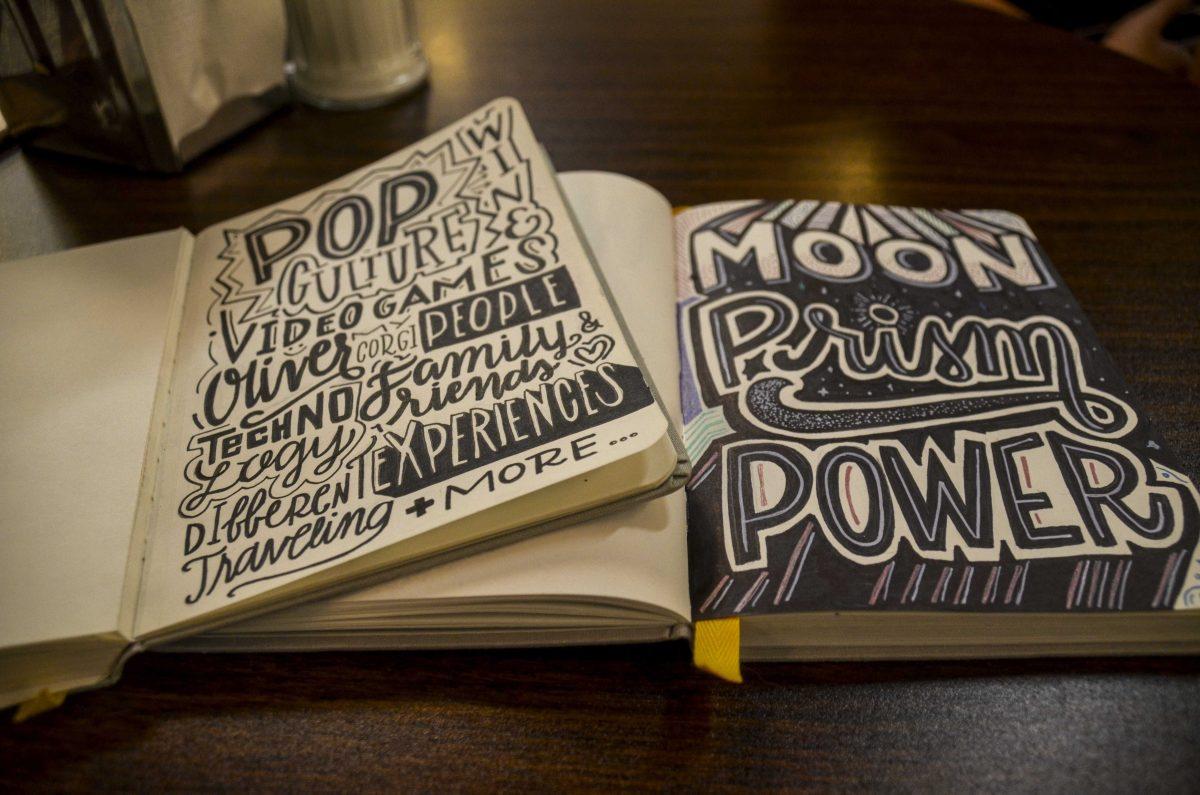 POP
WIN &
CULTURE
VIDEO GAMES
Oliver CORGI PEOPLE
Family &
TECHNO Friends
LOGY EXPERIENCES
DIFFERENT
Traveling + MORE ...
MOON
Prism
POWER